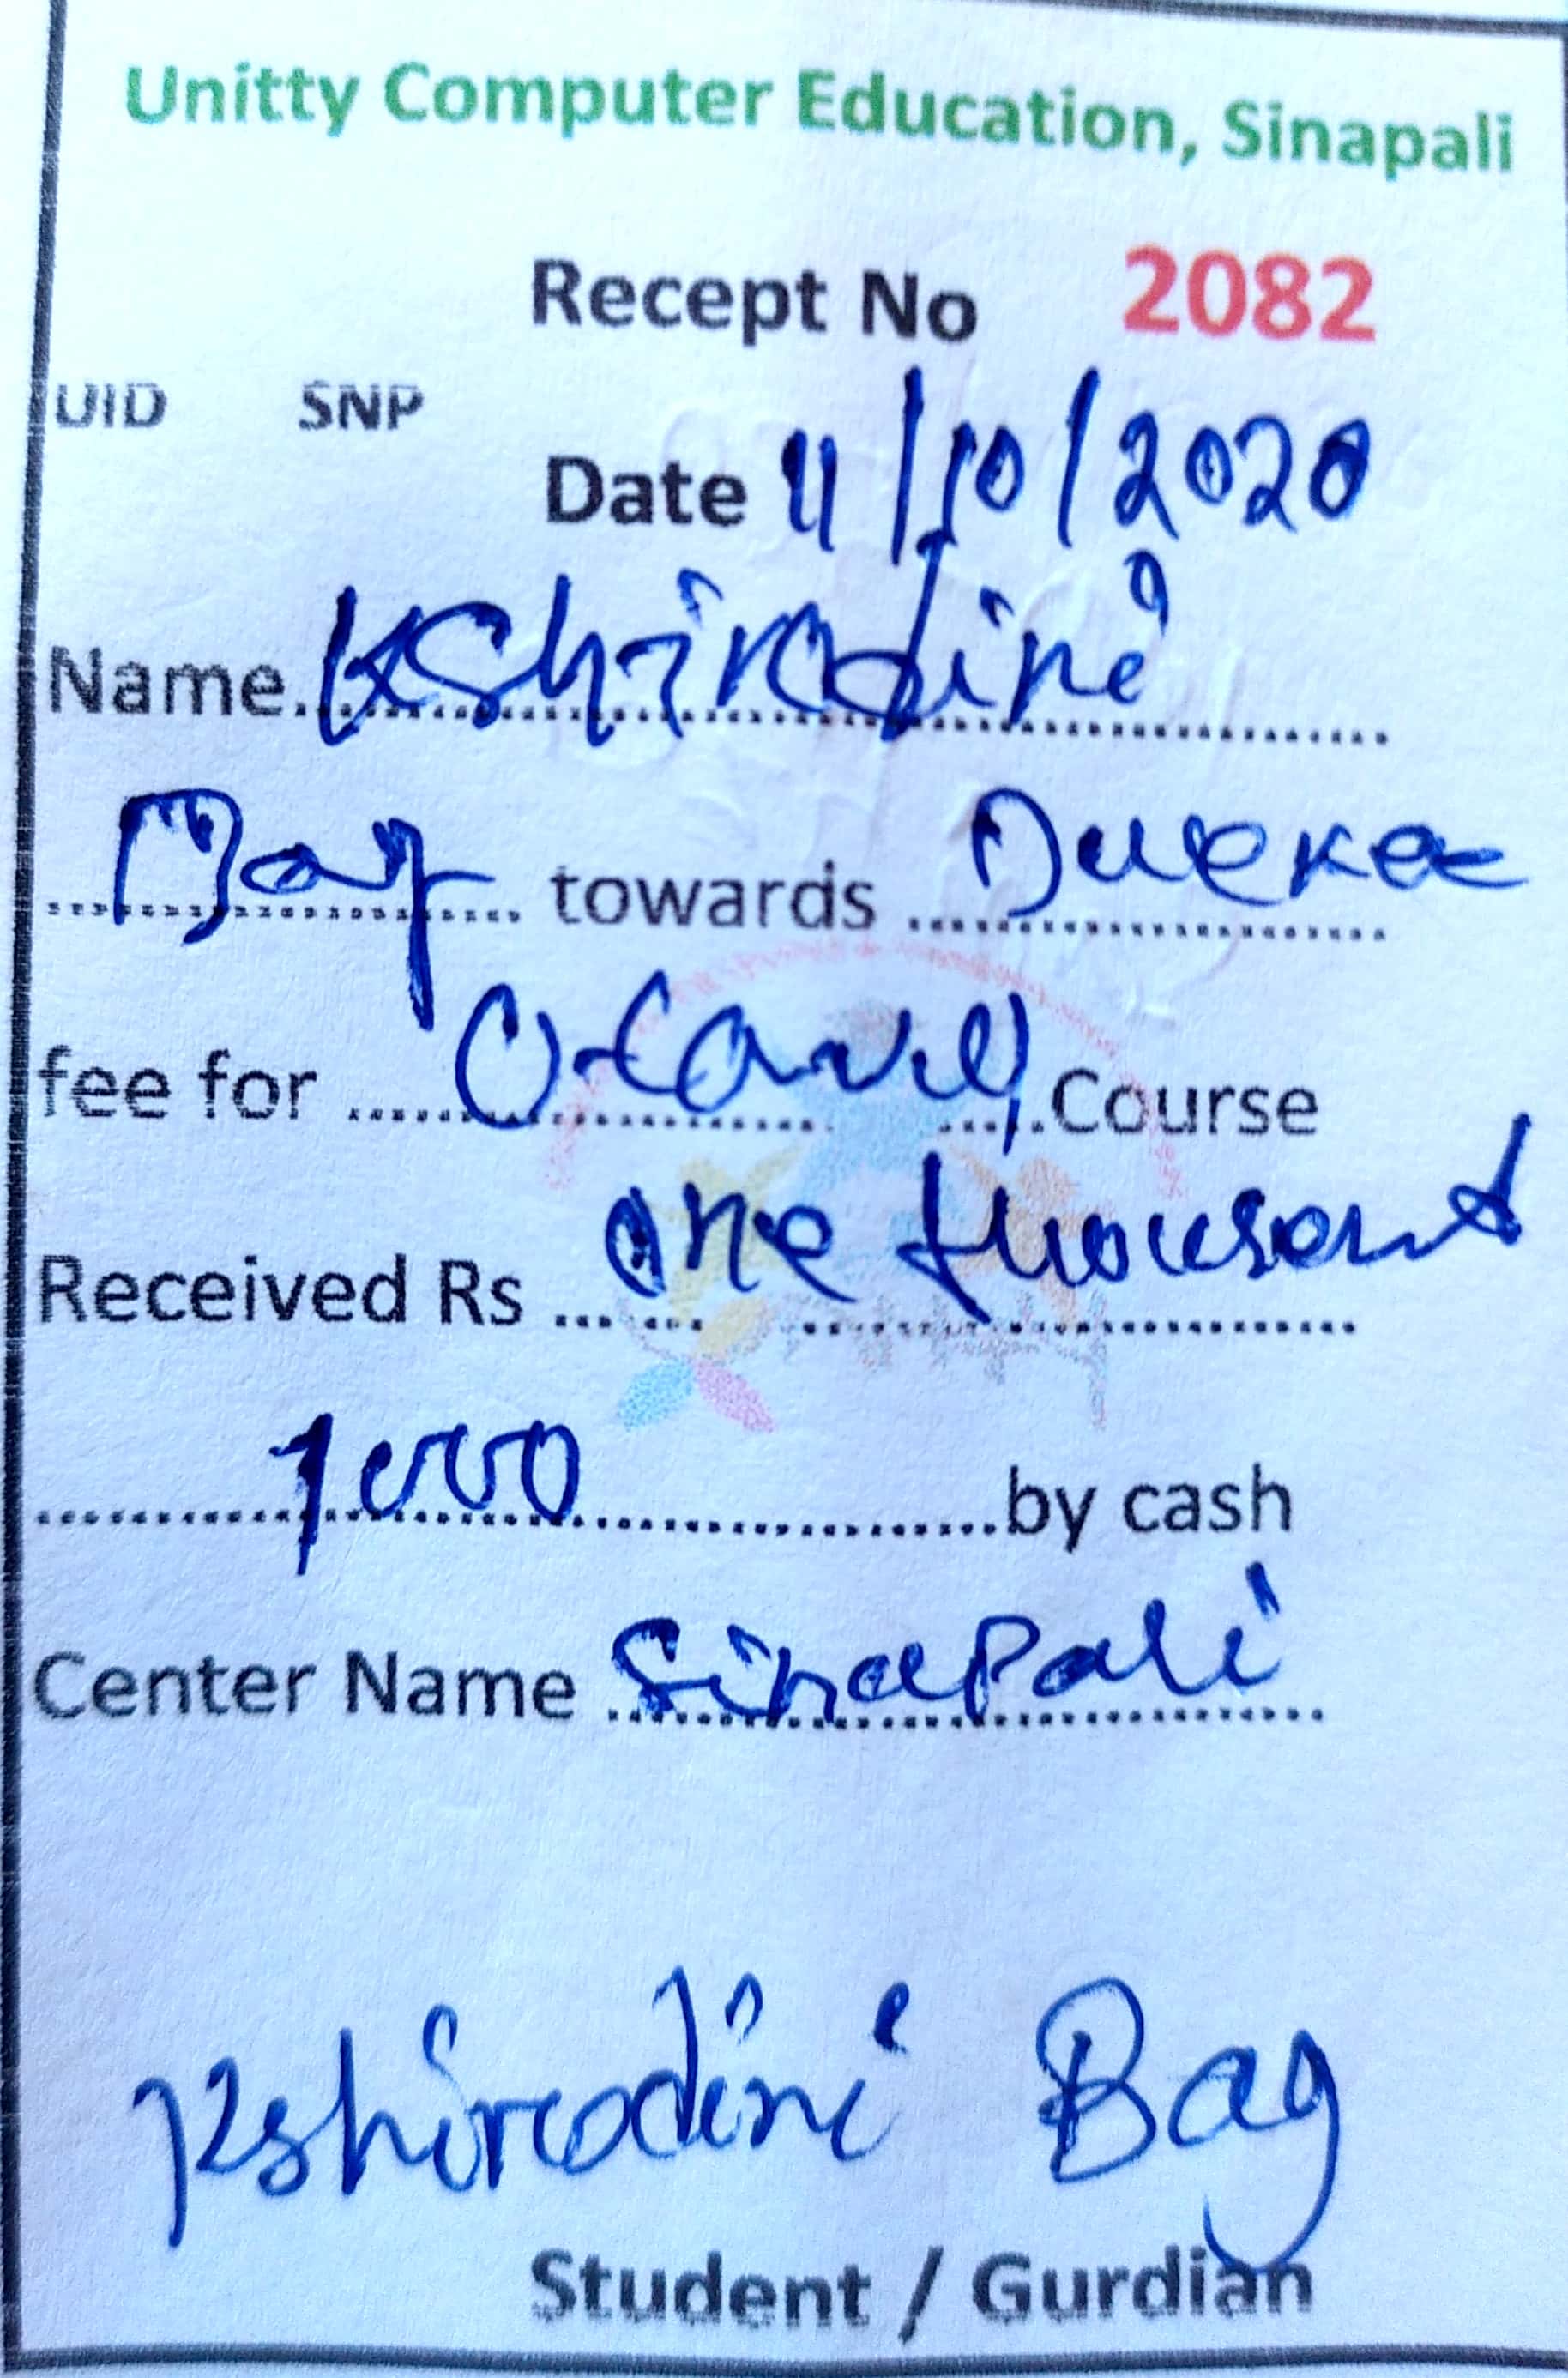 Unitty Computer Education, Sinapali
Recept No 2082
UID SNP
Date 11/10/2020
Name. Kshirodini
Bag towards
fee for Course
Received Rs one thousand
1000 by cash
Center Name Sinapali
Kshirodini Bag
Student / Gurdian